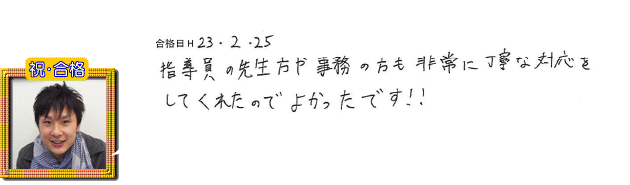 合格日H23・2・25
祝・合格
指導員の先生方や事務の方も非常に丁寧な対応を
してくれたのでよかったです!!